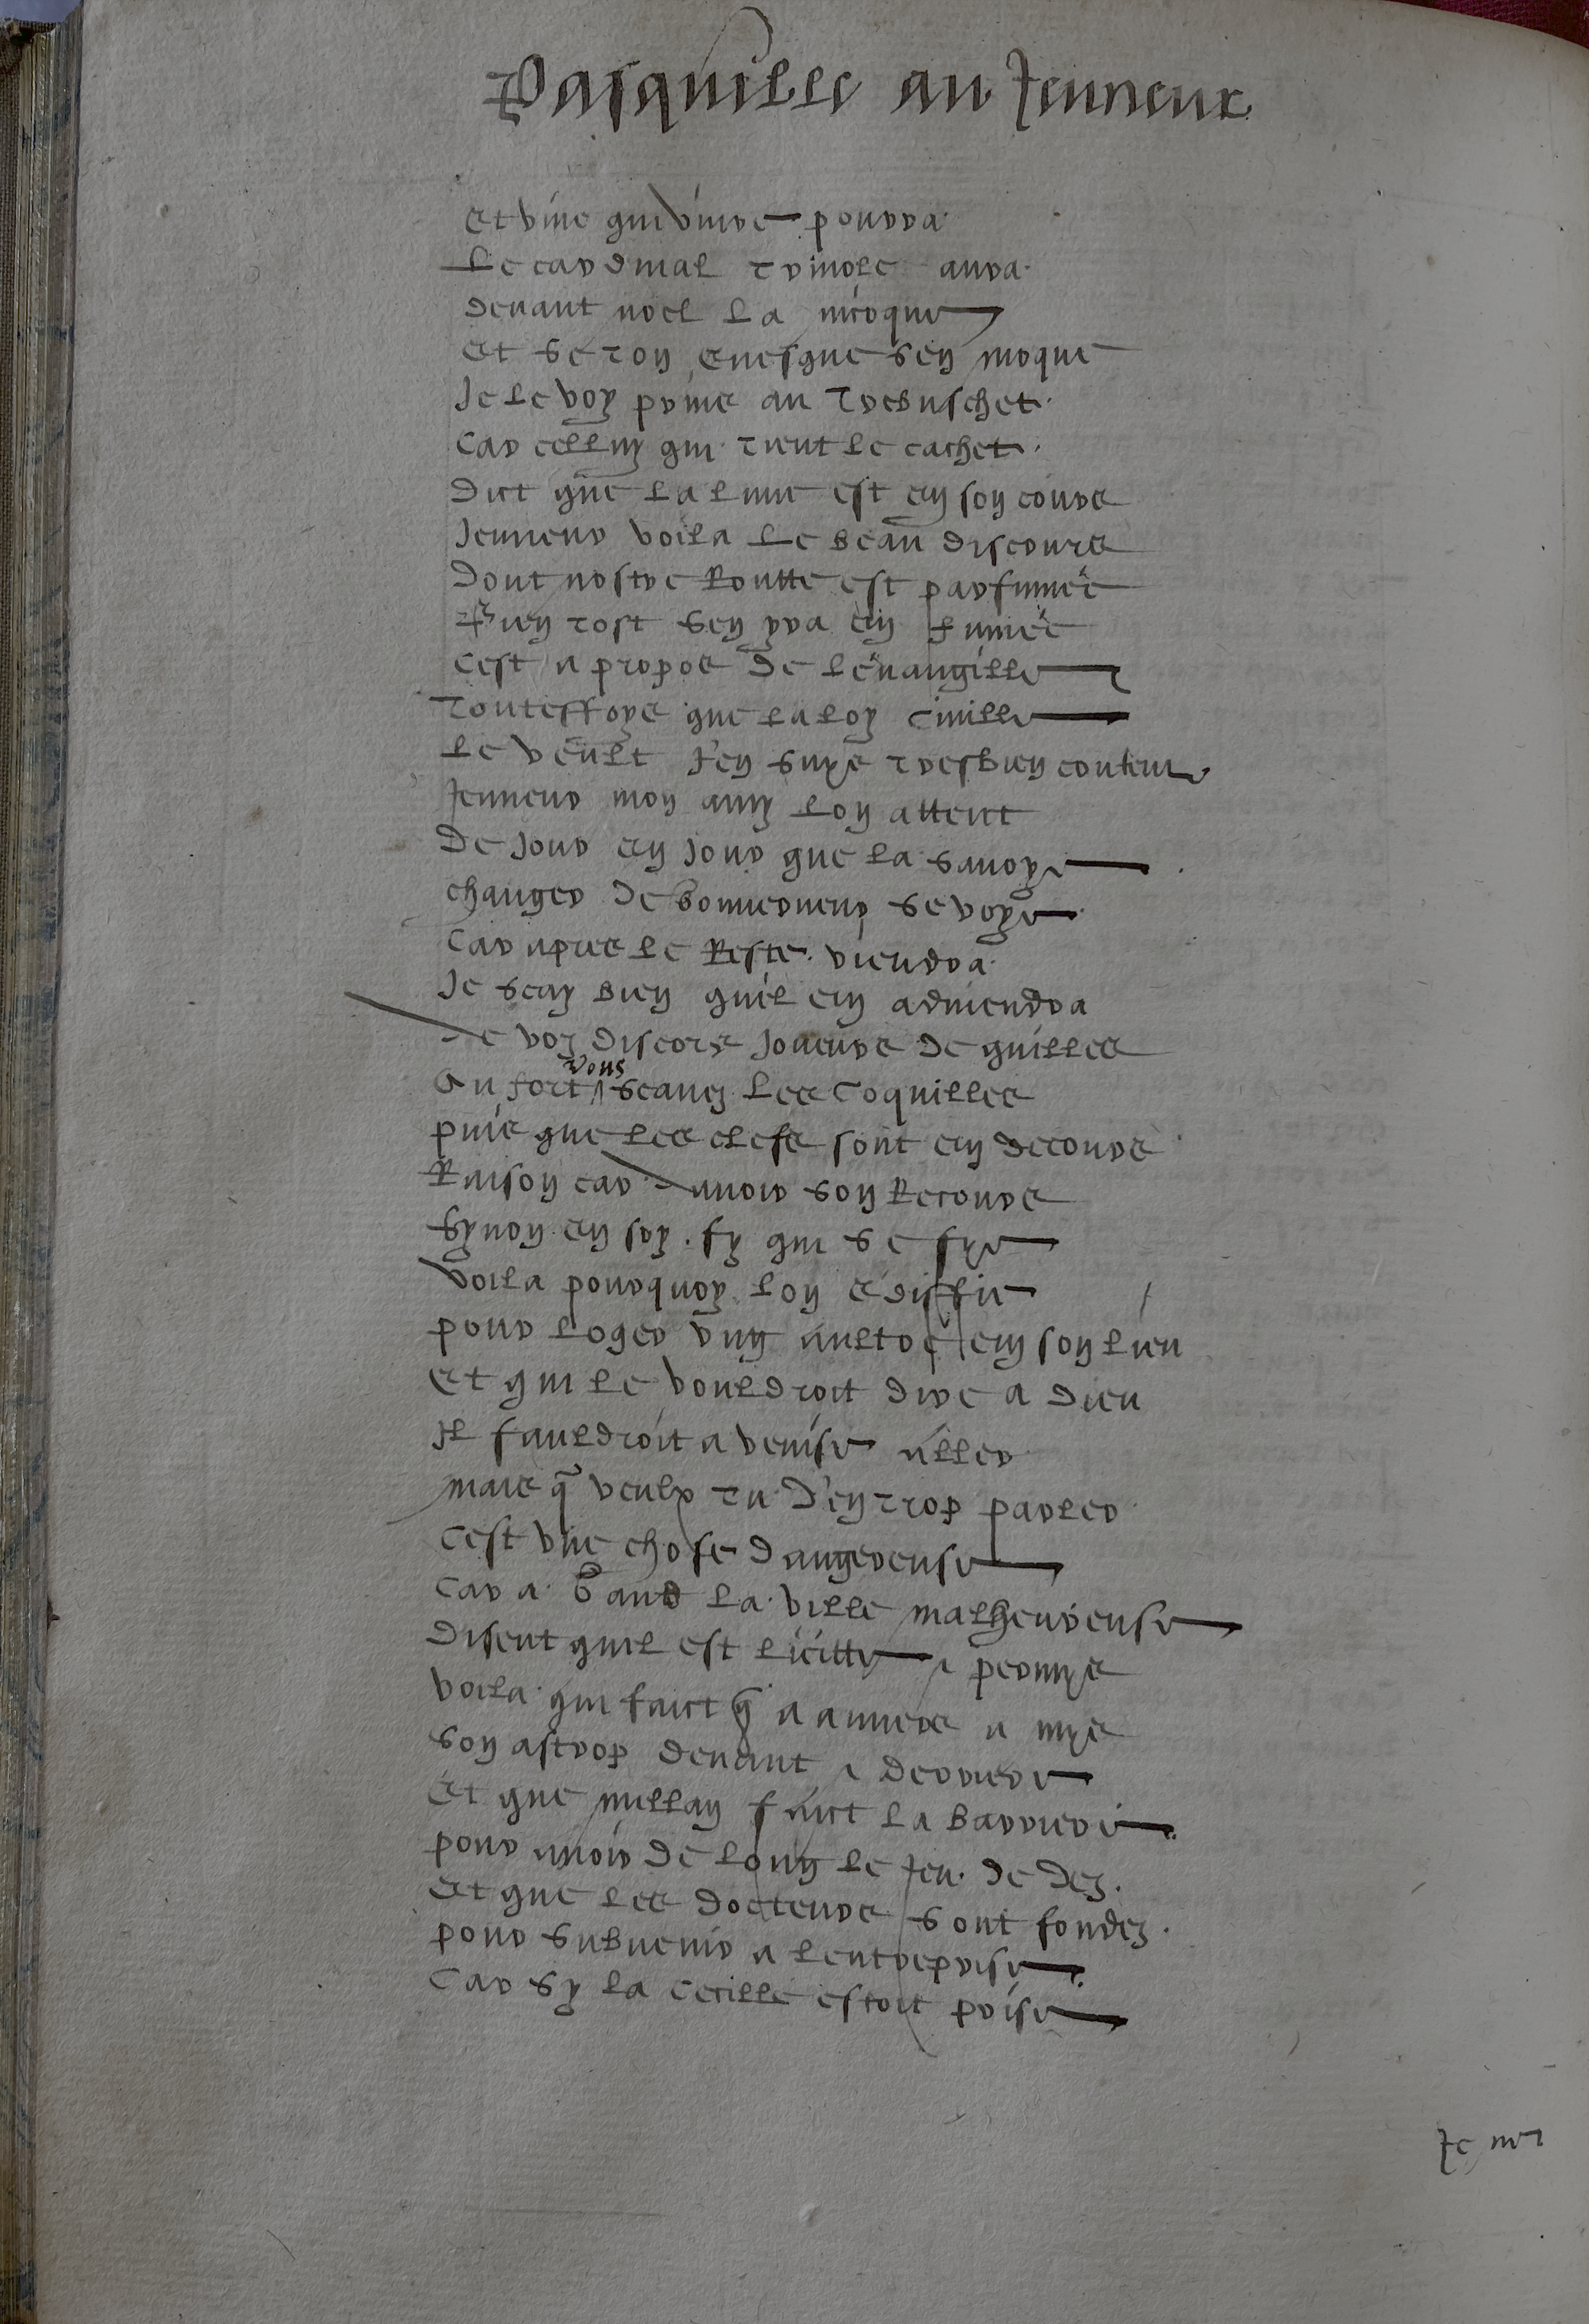 Pasquille au Jenneur
Et vive qui vivre pourra
Le cardinal trivole aura
Devant noel la nicque
Et se ton evesque sen moque
Je le voy prins au trebuschet
Car celluy qui tient le cachet
Dict que la lune est en son cours
Jenneur voila le beau discours
Dont nostre Routte est parfumée
Bien tost sen yra en fumée
Cest a propos de levangille
Touteffoys que la loy civille
Le veult J'en suys tresbien content
Jenneur mon amy lon attent
De jour en jour que la Savoye
Changer de se voye
Car apres le Reste viendra
Je scay bien quil en adviendra
De voz discors joueurs de quilles
Au fort vous scavez les coquilles
puis que les clefs sont en decours
Raison car davoir son Recours
Synon en soy fy qui se fye
Voila pourquoy lon ediffie
pour loger ung aultre en son lieu
Et qui le vouldroit dire a dieu
Il fauldroit a venise aller
Mais q̃ veulx tu d'en trop parler
Cest une chose dangereuse
Car a Gand la ville malheureuse
Disent quil est licitte & permys
Voila qui faict q̃ a Anvers a mys
Son astrop devant & derriere
Et que millan faict la barriere
pour avoir de loing le Jeu de dez
Et que les docteurs sont fondez
pour subvenir a lentreprise
Car sy la cecille estoit prise
Je me